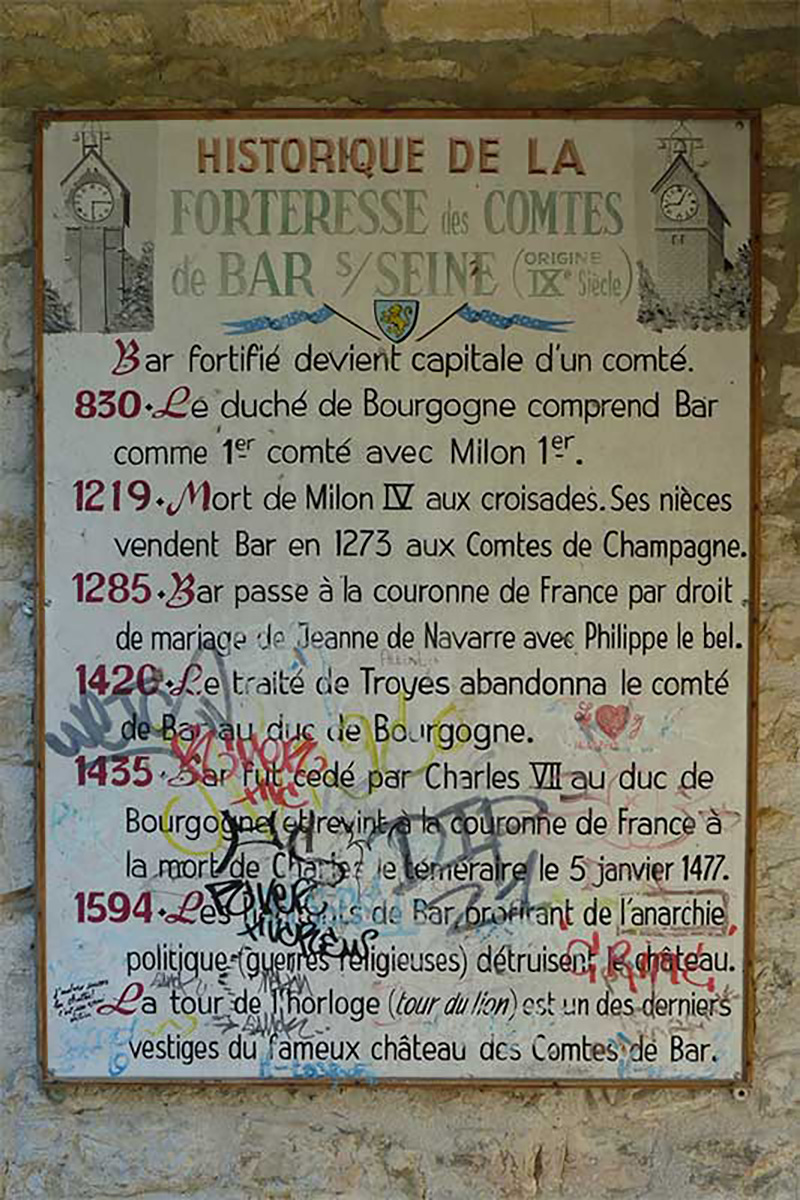 HISTORIQUE DE LA
FORTERESSE des COMTES
de BAR S/SEINE (ORIGINE IXe Siècle)
Bar fortifié devient capitale d'un comté.
830·Le duché de Bourgogne comprend Bar
comme 1er comté avec Milon 1er.
1219·Mort de Milon IV aux croisades. Ses nièces
vendent Bar en 1273 aux Comtes de Champagne.
1285·Bar passe à la couronne de France par droit
de mariage de Jeanne de Navarre avec Philippe le bel.
1420·Le traité de Troyes abandonna le comté
de Bar au duc de Bourgogne.
1435·Bar fut cédé par Charles VII au duc de
Bourgogne et revint à la couronne de France à
la mort de Charles le téméraire le 5 janvier 1477.
1594·Les de Bar, profitant de l'anarchie
politique (guerres religieuses) détruisent le château.
La tour de l'horloge (tour du lion) est un des derniers
vestiges du fameux château des Comtes de Bar.